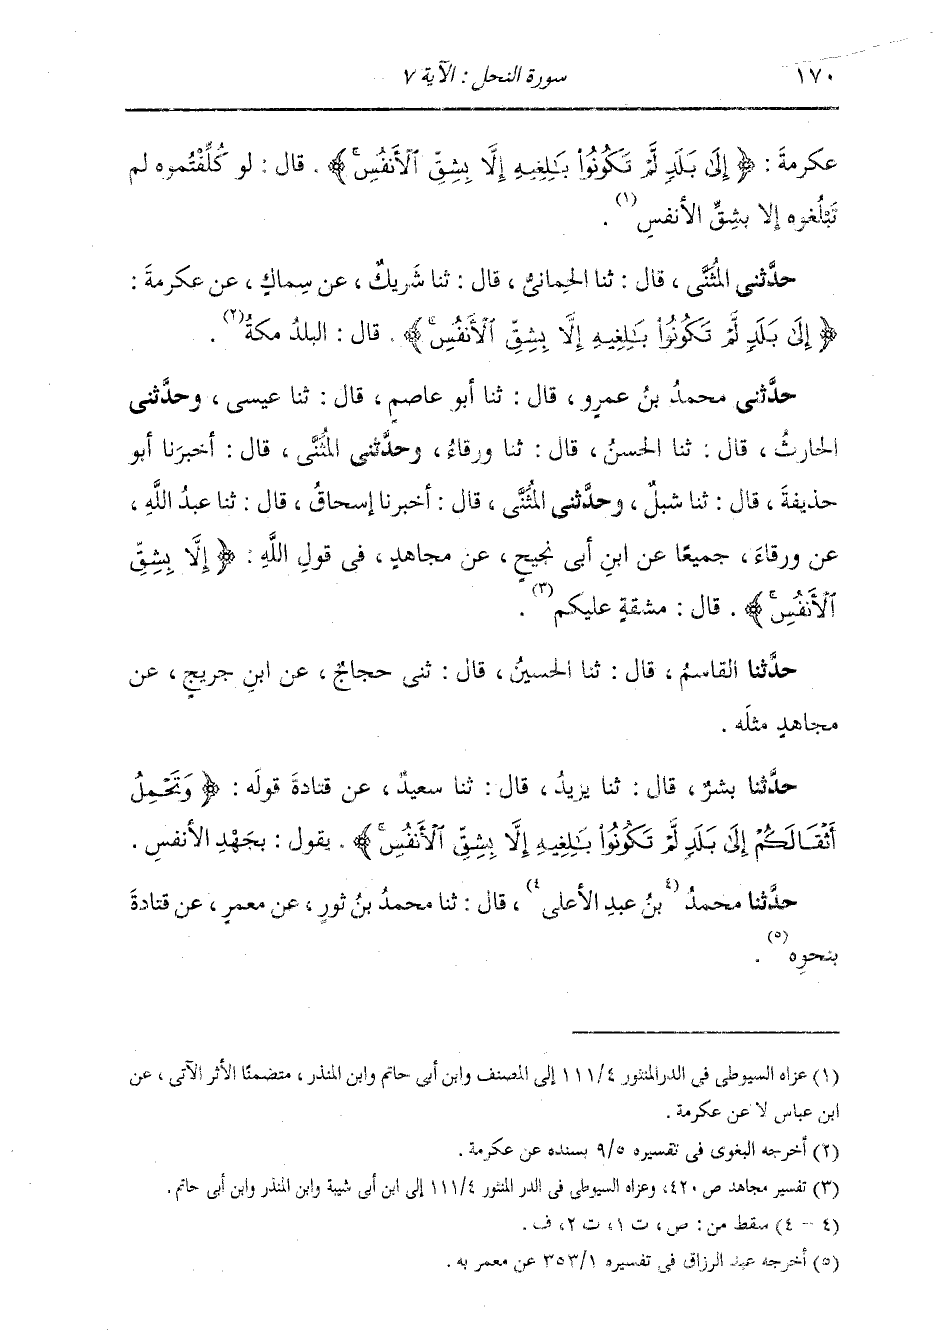 ١٧٠ سورة النحل : الآية ٧
عكرمةَ : ﴿ إِلَىٰ بَلَدٍ لَّمْ تَكُونُوا۟ بَـٰلِغِيهِ إِلَّا بِشِقِّ ٱلْأَنفُسِ ۚ ﴾ . قال : لو كُلِّفْتُموه لم
تَبْلُغوه إلا بشِقِّ الأنفسِ(١) .
حدَّثنى المُثَنَّى ، قال : ثنا الحِمانىُّ ، قال : ثنا شَريكٌ ، عن سِماكٍ ، عن عكرمةَ :
﴿ إِلَىٰ بَلَدٍ لَّمْ تَكُونُوا۟ بَـٰلِغِيهِ إِلَّا بِشِقِّ ٱلْأَنفُسِ ۚ ﴾ . قال : البلدُ مكةُ(٢) .
حدَّثنى محمدُ بنُ عمرٍو ، قال : ثنا أبو عاصمٍ ، قال : ثنا عيسى ، وحدَّثنى
الحارثُ ، قال : ثنا الحسنُ ، قال : ثنا ورقاءُ ، وحدَّثنى المُثَنَّى ، قال : أخبرَنا أبو
حذيفةَ ، قال : ثنا شبلٌ ، وحدَّثنى المُثَنَّى ، قال : أخبرنا إسحاقُ ، قال : ثنا عبدُ اللَّهِ ،
عن ورقاءَ ، جميعًا عن ابنِ أبى نجيحٍ ، عن مجاهدٍ ، فى قولِ اللَّهِ : ﴿ إِلَّا بِشِقِّ
ٱلْأَنفُسِ ۚ ﴾ . قال : مشقةٍ عليكم(٣) .
حدَّثنا القاسمُ ، قال : ثنا الحسينُ ، قال : ثنى حجاجٌ ، عن ابنِ جريجٍ ، عن
مجاهدٍ مثلَه .
حدَّثنا بشرٌ ، قال : ثنا يزيدُ ، قال : ثنا سعيدٌ ، عن قتادةَ قولَه : ﴿ وَتَحْمِلُ
أَثْقَـالَكُمْ إِلَىٰ بَلَدٍ لَّمْ تَكُونُوا۟ بَـٰلِغِيهِ إِلَّا بِشِقِّ ٱلْأَنفُسِ ۚ ﴾ . يقول : بجَهْدِ الأنفسِ .
حدَّثنا محمدُ (٤بنُ عبدِ الأعلى٤) ، قال : ثنا محمدُ بنُ ثورٍ ، عن معمرٍ ، عن قتادةَ
بنحوِه(٥) .
(١) عزاه السيوطى فى الدر المنثور ١١١/٤ إلى المصنف وابن أبى حاتم وابن المنذر ، متضمنًا الأثر الآتى ، عن
ابن عباس لا عن عكرمة .
(٢) أخرجه البغوى فى تفسيره ٩/٥ بسنده عن عكرمة .
(٣) تفسير مجاهد ص ٤٢٠، وعزاه السيوطى فى الدر المنثور ١١١/٤ إلى ابن أبى شيبة وابن المنذر وابن أبى حاتم .
(٤ - ٤) سقط من : ص ، ت ١، ت ٢، ف .
(٥) أخرجه عبد الرزاق فى تفسيره ٣٥٣/١ عن معمر به .